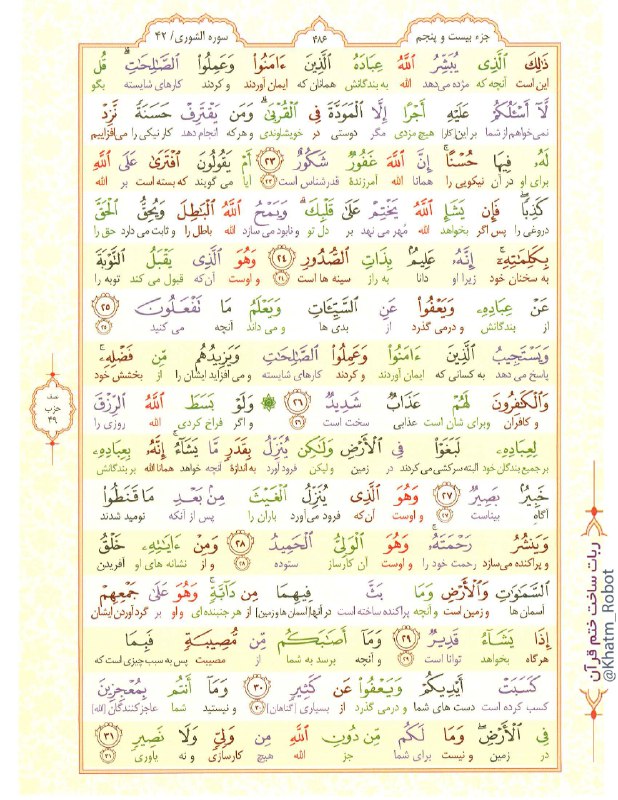 جزء بیست و پنجم
۴۸۶
سوره الشوری/ ۴۲
ذَٰلِكَ ٱلَّذِى يُبَشِّرُ ٱللَّهُ عِبَادَهُ ٱلَّذِينَ ءَامَنُوا۟ وَعَمِلُوا۟ ٱلصَّٰلِحَٰتِ ۗ قُل
این است آنچه که مژده می‌دهد الله به بندگانش همانان که ایمان آوردند و کردند کارهای شایسته بگو
لَّآ أَسْـَٔلُكُمْ عَلَيْهِ أَجْرًا إِلَّا ٱلْمَوَدَّةَ فِى ٱلْقُرْبَىٰ ۗ وَمَن يَقْتَرِفْ حَسَنَةً نَّزِدْ
نمی‌خواهم از شما بر این کار هیچ مزدی مگر دوستی در خویشاوندی و هرکه انجام دهد کار نیکی را می‌افزاییم
لَهُۥ فِيهَا حُسْنًا ۚ إِنَّ ٱللَّهَ غَفُورٌ شَكُورٌ ۲۳ أَمْ يَقُولُونَ ٱفْتَرَىٰ عَلَى ٱللَّهِ
برای او در آن نیکویی را همانا الله آمرزندهٔ قدرشناس است ۲۳ آیا می گویند که بسته است بر الله
كَذِبًا ۖ فَإِن يَشَإِ ٱللَّهُ يَخْتِمْ عَلَىٰ قَلْبِكَ ۗ وَيَمْحُ ٱللَّهُ ٱلْبَٰطِلَ وَيُحِقُّ ٱلْحَقَّ
دروغی را پس اگر بخواهد الله مُهر می نهد بر دل تو و نابود می سازد الله باطل را و ثابت می دارد حق را
بِكَلِمَٰتِهِۦٓ ۚ إِنَّهُۥ عَلِيمٌۢ بِذَاتِ ٱلصُّدُورِ ۲۴ وَهُوَ ٱلَّذِى يَقْبَلُ ٱلتَّوْبَةَ
به سخنان خود زیرا او دانا به راز سینه ها است ۲۴ و اوست آن‌که قبول می کند توبه را
عَنْ عِبَادِهِۦ وَيَعْفُوا۟ عَنِ ٱلسَّيِّـَٔاتِ وَيَعْلَمُ مَا تَفْعَلُونَ ۲۵
از بندگانش و درمی گذرد از بدی ها و می داند آنچه می کنید ۲۵
وَيَسْتَجِيبُ ٱلَّذِينَ ءَامَنُوا۟ وَعَمِلُوا۟ ٱلصَّٰلِحَٰتِ وَيَزِيدُهُم مِّن فَضْلِهِۦ ۚ
پاسخ می دهد به کسانی که ایمان آوردند و کردند کارهای شایسته و می افزاید ایشان را از بخشش خود
وَٱلْكَٰفِرُونَ لَهُمْ عَذَابٌ شَدِيدٌ ۲۶ وَلَوْ بَسَطَ ٱللَّهُ ٱلرِّزْقَ
و کافران وبرای شان است عذابی سخت است ۲۶ و اگر فراخ کردی الله روزی را
لِعِبَادِهِۦ لَبَغَوْا۟ فِى ٱلْأَرْضِ وَلَٰكِن يُنَزِّلُ بِقَدَرٍ مَّا يَشَآءُ ۚ إِنَّهُۥ بِعِبَادِهِۦ
بر جمیع بندگان خود البته سرکشی می کردند در زمین و لیکن فرود آورد به اندازهٔ آنچه خواهد همانا الله بر بندگانش
خَبِيرٌۢ بَصِيرٌ ۲۷ وَهُوَ ٱلَّذِى يُنَزِّلُ ٱلْغَيْثَ مِنۢ بَعْدِ مَا قَنَطُوا۟
آگاه بیناست ۲۷ و اوست آن‌که فرود می‌آورد باران را پس از آنکه نومید شدند
وَيَنشُرُ رَحْمَتَهُۥ ۚ وَهُوَ ٱلْوَلِىُّ ٱلْحَمِيدُ ۲۸ وَمِنْ ءَايَٰتِهِۦ خَلْقُ
و پراکنده می‌سازد رحمت خود را و اوست آن کارساز ستوده ۲۸ و از نشانه های او آفریدن
ٱلسَّمَٰوَٰتِ وَٱلْأَرْضِ وَمَا بَثَّ فِيهِمَا مِن دَآبَّةٍ ۚ وَهُوَ عَلَىٰ جَمْعِهِمْ
آسمان ها و زمین است و آنچه پراکنده ساخته است در آنها[آسمان ها و زمین] از هر جنبنده ای و او بر گردآوردن ایشان
إِذَا يَشَآءُ قَدِيرٌ ۲۹ وَمَآ أَصَٰبَكُم مِّن مُّصِيبَةٍ فَبِمَا
هرگاه بخواهد توانا است ۲۹ و آنچه برسد به شما از مصیبت پس به سبب چیزی است که
كَسَبَتْ أَيْدِيكُمْ وَيَعْفُوا۟ عَن كَثِيرٍ ۳۰ وَمَآ أَنتُم بِمُعْجِزِينَ
کسب کرده است دست های شما و درمی گذرد از بسیاری [گناهان] ۳۰ و نیستید شما عاجزکنندگان [الله]
فِى ٱلْأَرْضِ ۖ وَمَا لَكُم مِّن دُونِ ٱللَّهِ مِن وَلِىٍّ وَلَا نَصِيرٍ ۳۱
در زمین و نیست برای شما جز الله هیچ کارسازی و نه یاوری ۳۱
نصف
حزب
۴۹
ربات ساخت ختم قرآن
@Khatm_Robot